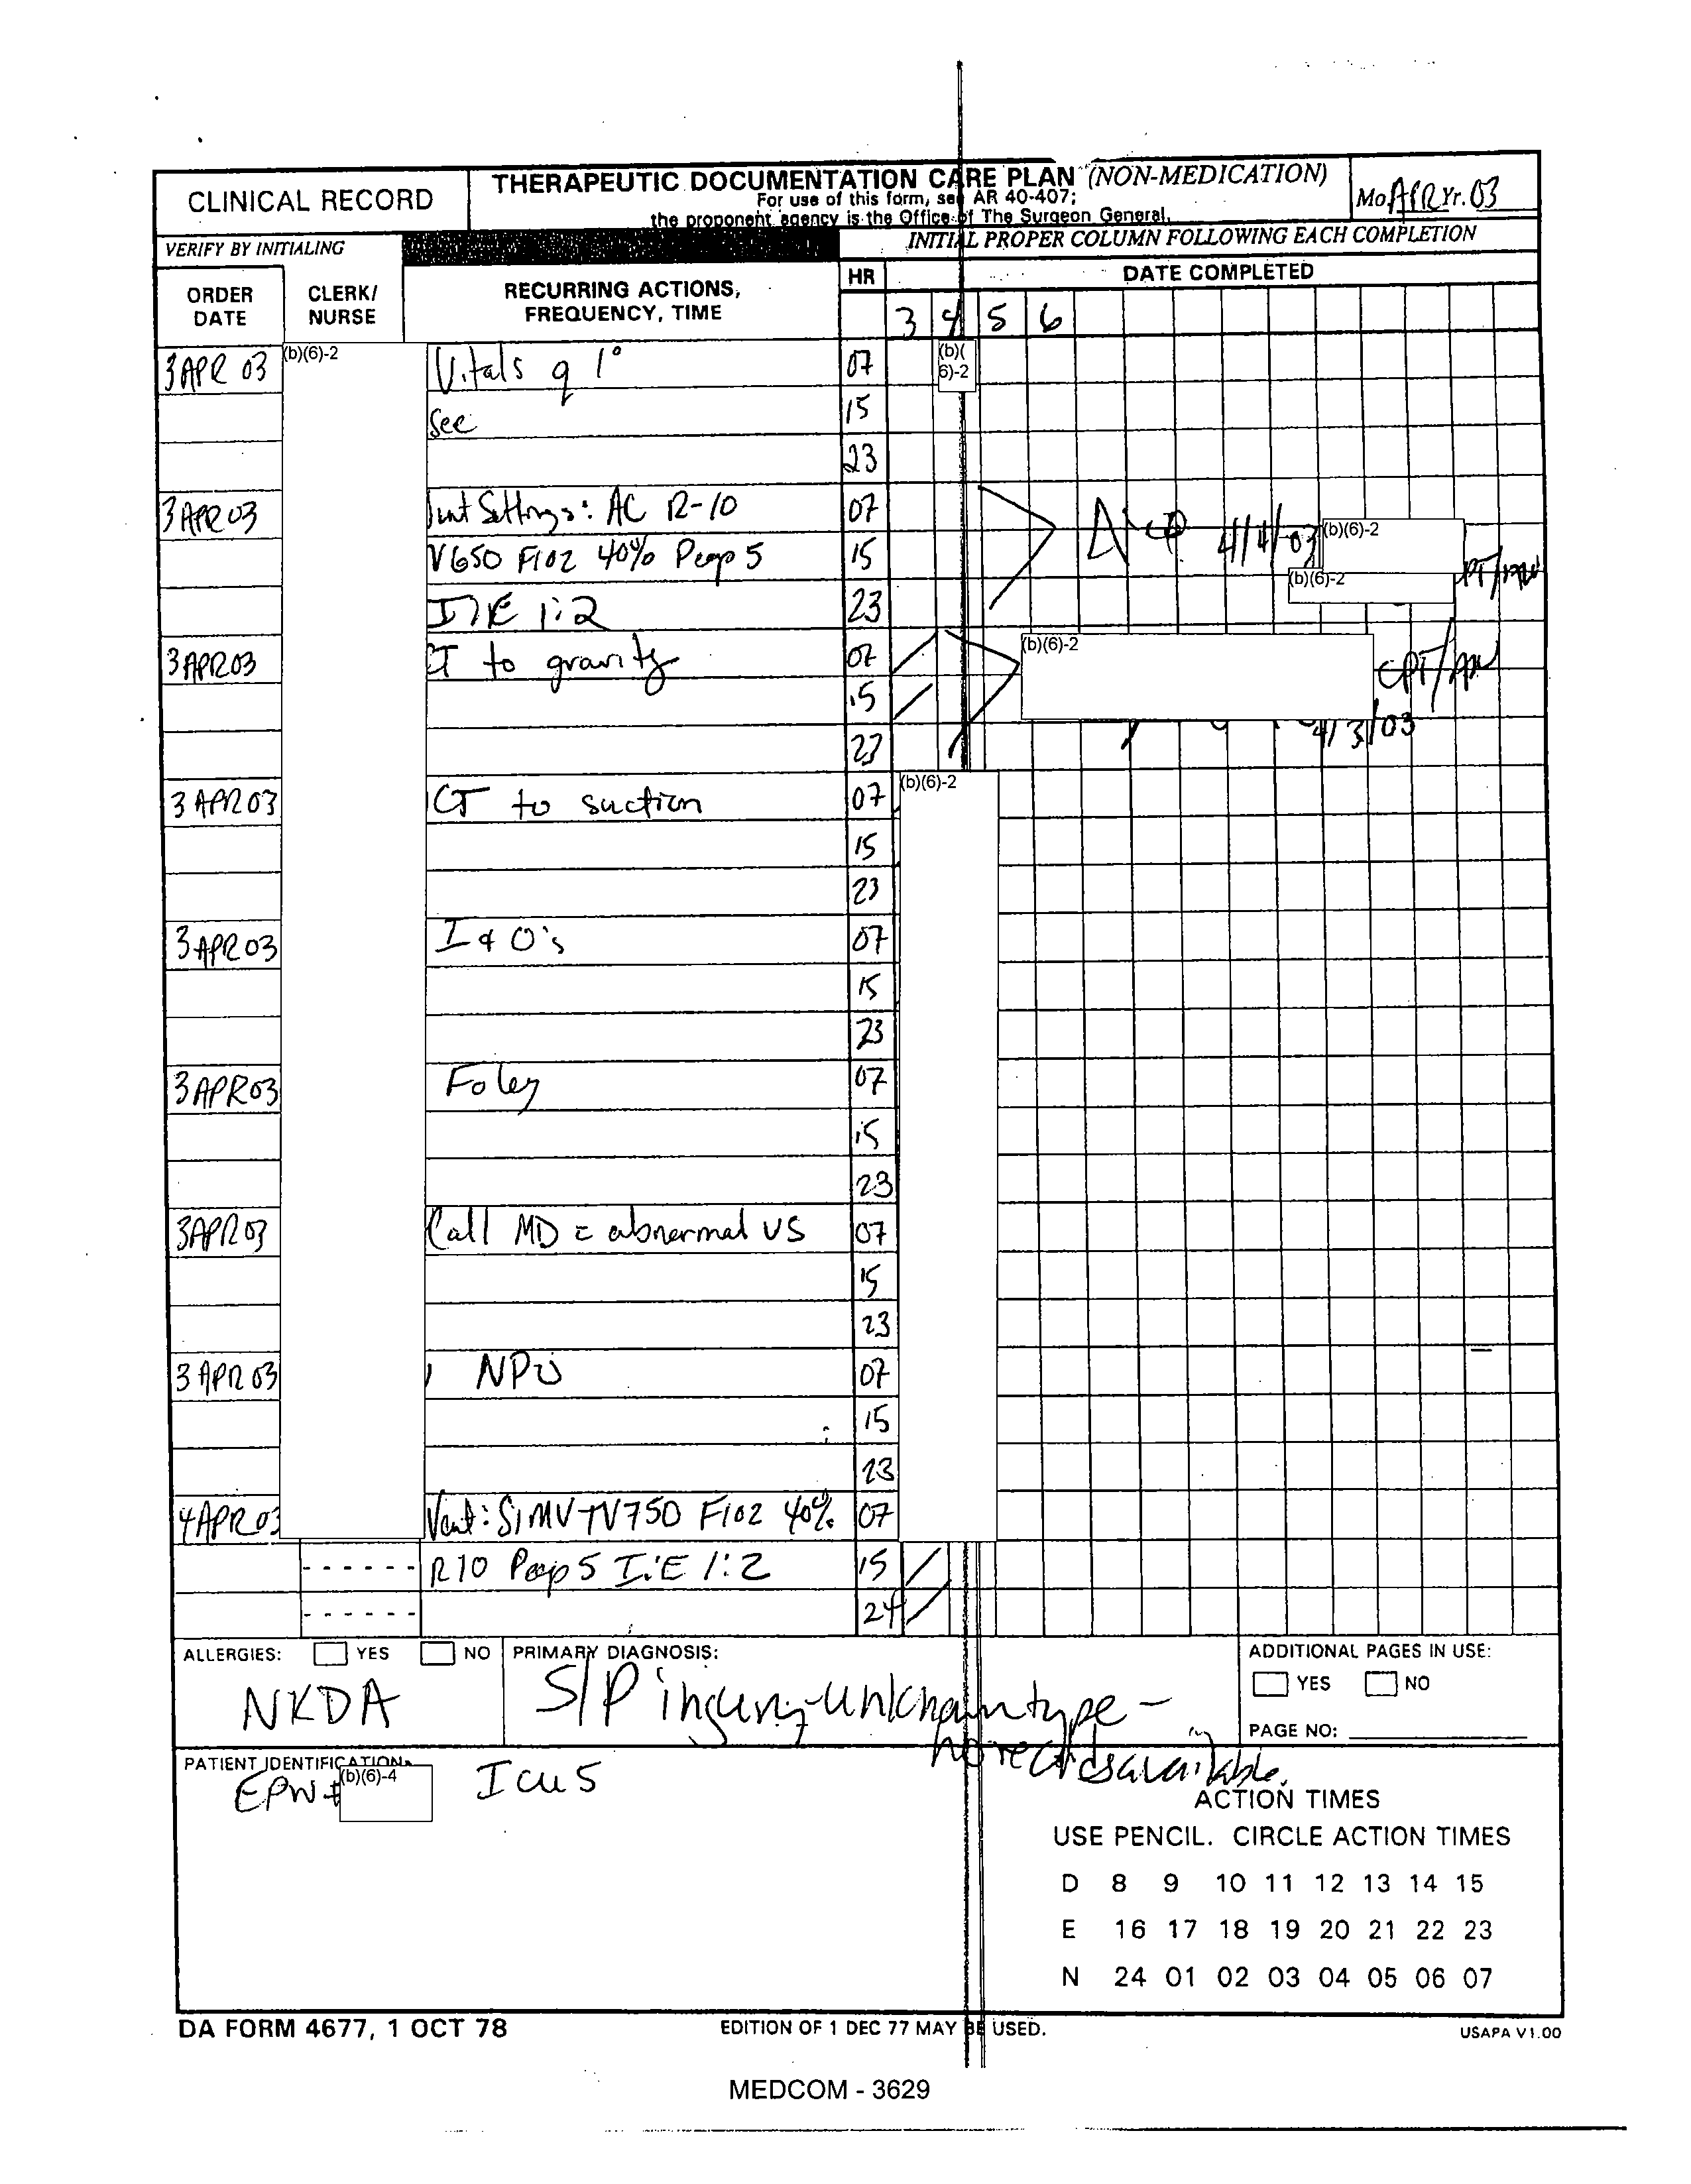 CLINICAL RECORD
THERAPEUTIC DOCUMENTATION CARE PLAN (NON-MEDICATION)
For use of this form, see AR 40-407;
the proponent agency is the Office of The Surgeon General.
Mo. APR Yr. 03
VERIFY BY INITIALING
INITIAL PROPER COLUMN FOLLOWING EACH COMPLETION
ORDER DATE
CLERK/ NURSE
RECURRING ACTIONS, FREQUENCY, TIME
HR
DATE COMPLETED
3 4 5 6
3 APR 03 (b)(6)-2 Vitals q 1° 07 (b)(6)-2
See 15
23
3 APR 03 Settings: AC R-10 07
V650 FIO2 40% Peep 5 15 4/4/03 (b)(6)-2
(b)(6)-2
I:E 1:2 23
3 APR 03 CT to gravity 07 (b)(6)-2 CPT/AN
15
23 4/3/03
3 APR 03 CT to suction 07 (b)(6)-2
15
23
3 APR 03 I & O's 07
15
23
3 APR 03 Foley 07
15
23
3 APR 03 Call MD c abnormal VS 07
15
23
3 APR 03 NPO 07
15
23
4 APR 03 Vent: SIMV TV750 FIO2 40% 07
R10 Peep 5 I:E 1:2 15
24
ALLERGIES: YES NO
NKDA
PRIMARY DIAGNOSIS:
S/P injury-unknown type -
no records available.
ADDITIONAL PAGES IN USE:
YES NO
PAGE NO:
PATIENT IDENTIFICATION:
EPW# (b)(6)-4 ICU 5
ACTION TIMES
USE PENCIL. CIRCLE ACTION TIMES
D 8 9 10 11 12 13 14 15
E 16 17 18 19 20 21 22 23
N 24 01 02 03 04 05 06 07
DA FORM 4677, 1 OCT 78
EDITION OF 1 DEC 77 MAY BE USED.
USAPA V1.00
MEDCOM - 3629